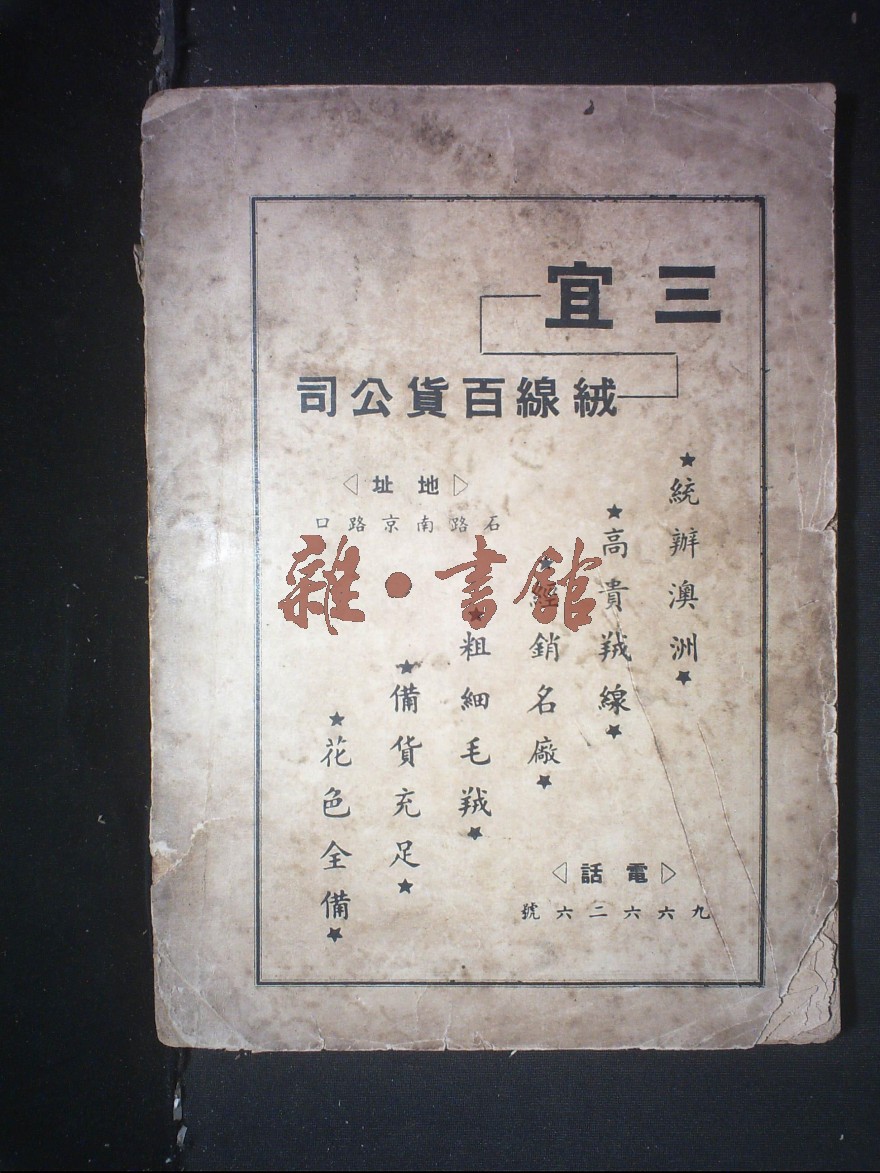 三宜
絨線百貨公司
★統辦澳洲★
★高貴羢線★
★經銷名廠★
★粗細毛羢★
★備貨充足★
★花色全備★
地址
石路南京路口
電話
九六六二六號
雜·書館